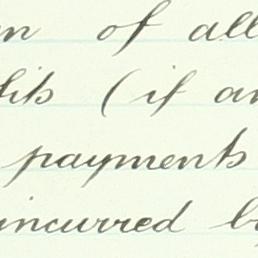 n of all
fits (if an
payments
incurred b